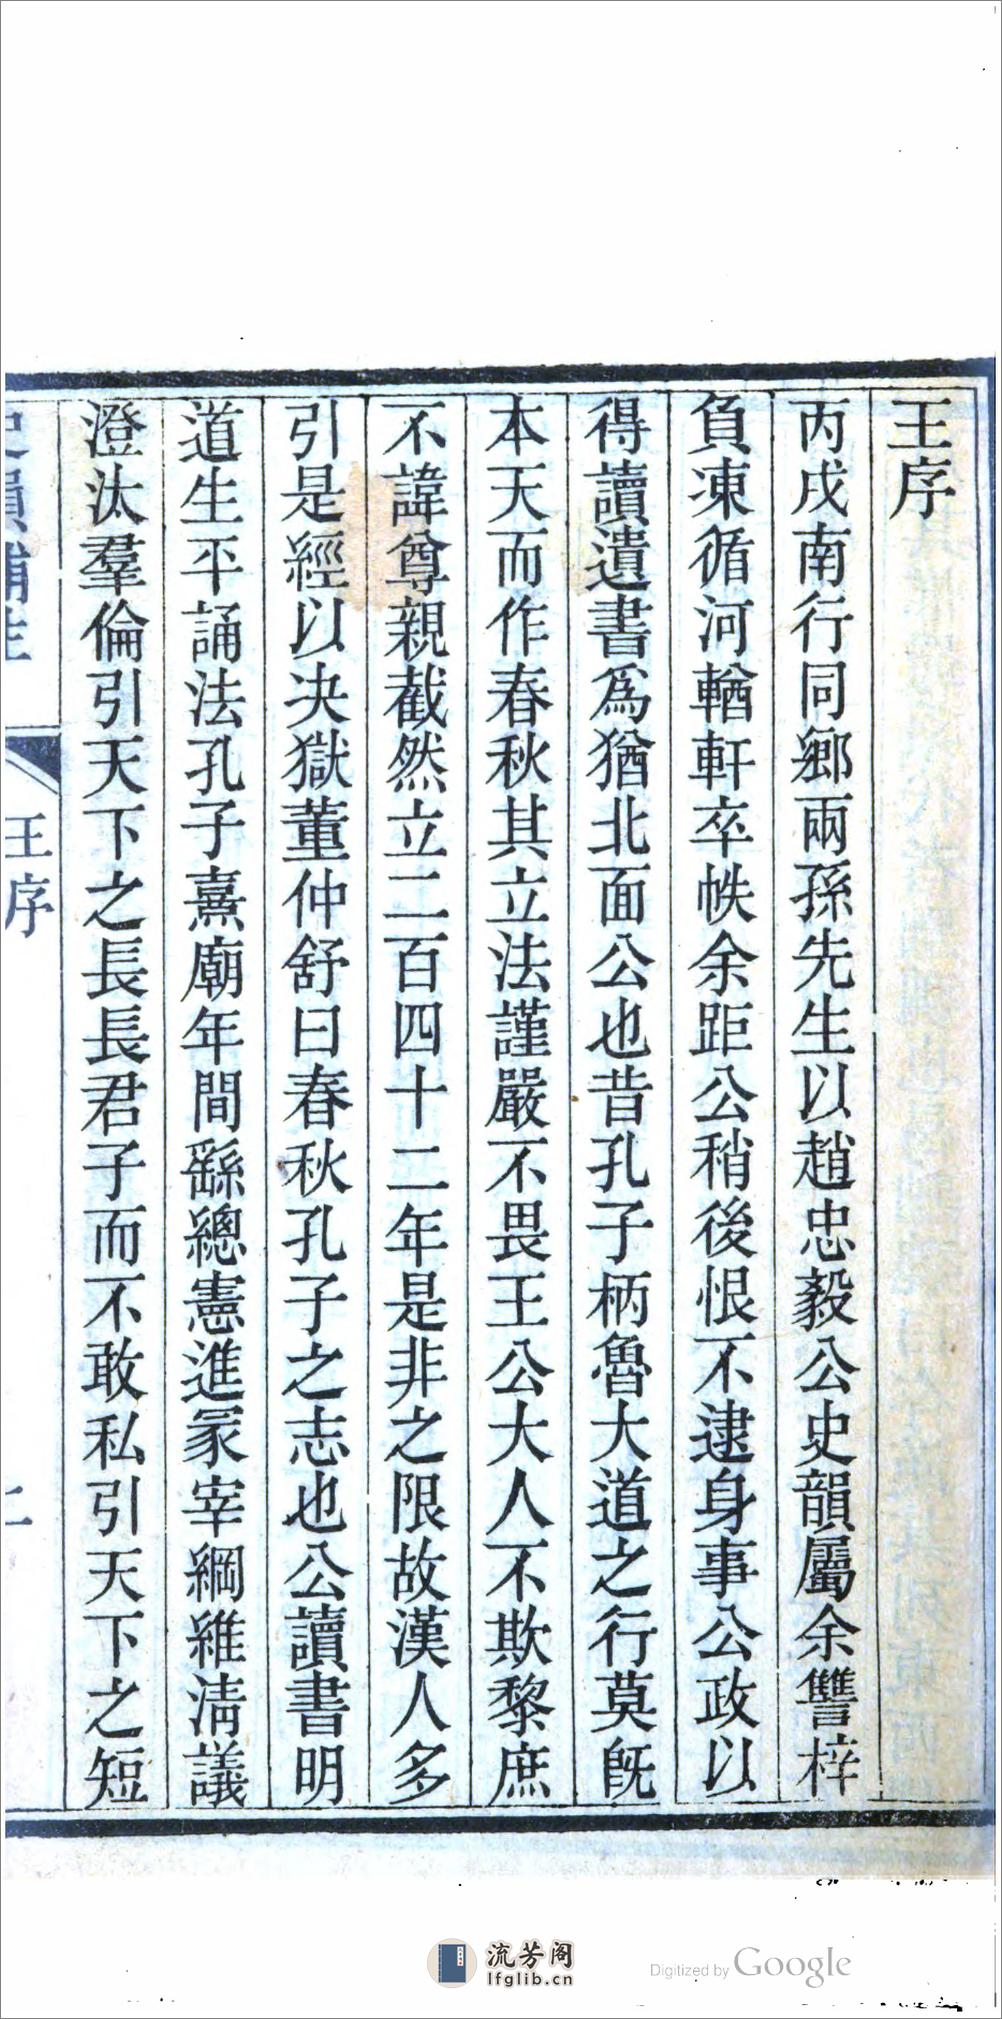 王序
丙戌南行同鄉兩孫先生以趙忠毅公史韻屬余讐梓
負凍循河輶軒卒帙余距公稍後恨不逮身事公政以
得讀遺書爲猶北面公也昔孔子柄魯大道之行莫旣
本天而作春秋其立法謹嚴不畏王公大人不欺黎庶
不諱尊親截然立二百四十二年是非之限故漢人多
引是經以决獄董仲舒曰春秋孔子之志也公讀書明
道生平誦法孔子熹廟年間繇總憲進冢宰綱維淸議
澄汰羣倫引天下之長長君子而不敢私引天下之短
王序
流芳阁
lfglib.cn
Digitized by Google